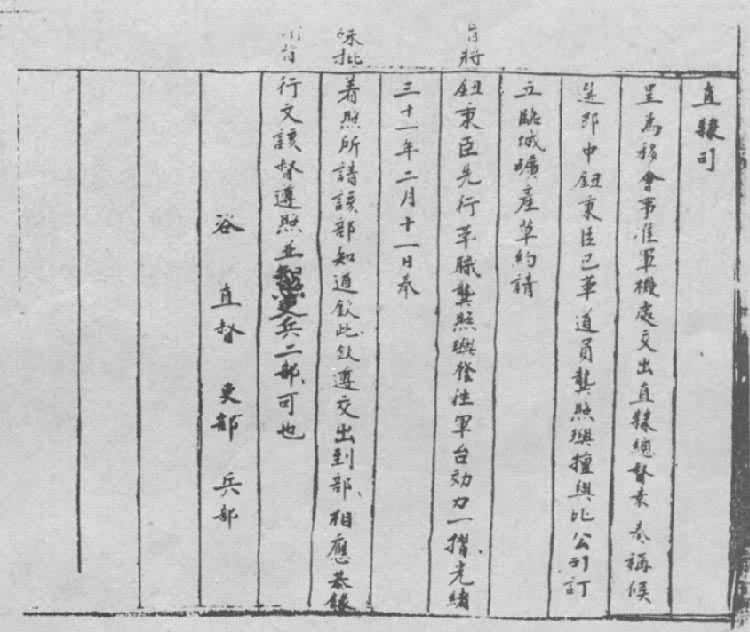 直隸司
呈爲移會事准軍機處交出直隸總督袁奏稱候
選郎中鈕秉臣已革道員龔照璵擅與比公司訂
立臨城礦產草約請
旨將鈕秉臣先行革職龔照璵發往軍台効力一摺光緒
三十一年二月十一日奉
硃批着照所請該部知道欽此欽遵交出到部相應恭錄
行文該督遵照並知照吏兵二部可也
咨 直督 吏部 兵部